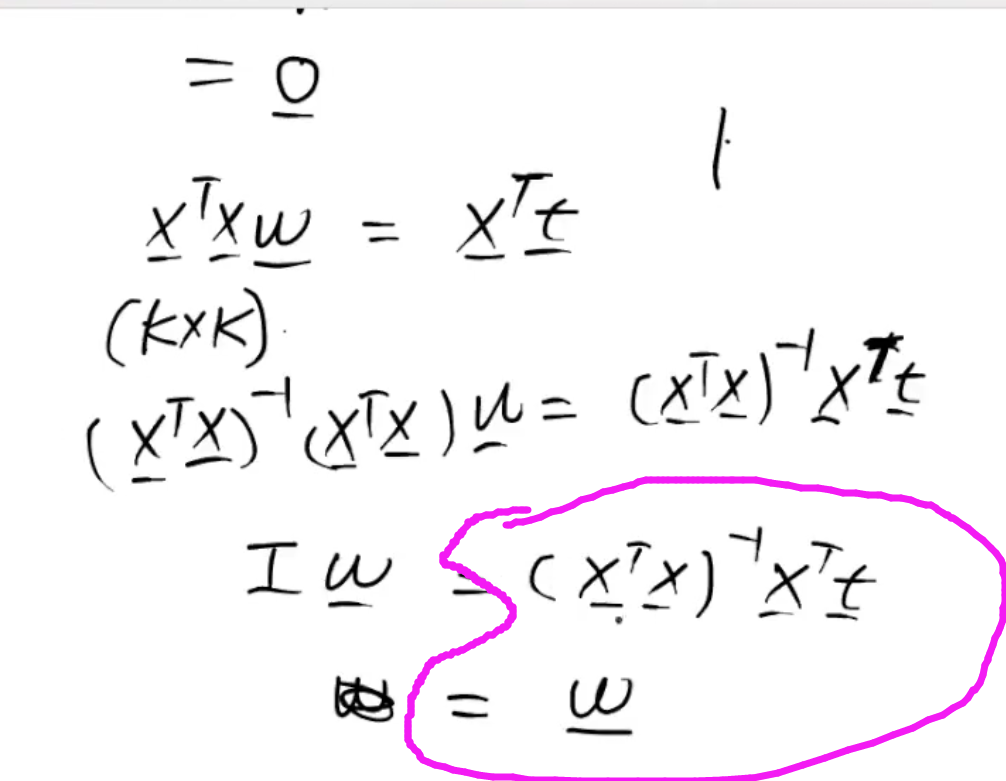 = 0
XᵀX w = Xᵀt
(K×K)
(XᵀX)⁻¹ (XᵀX) w = (XᵀX)⁻¹ Xᵀt
I w = (XᵀX)⁻¹ Xᵀt
= w